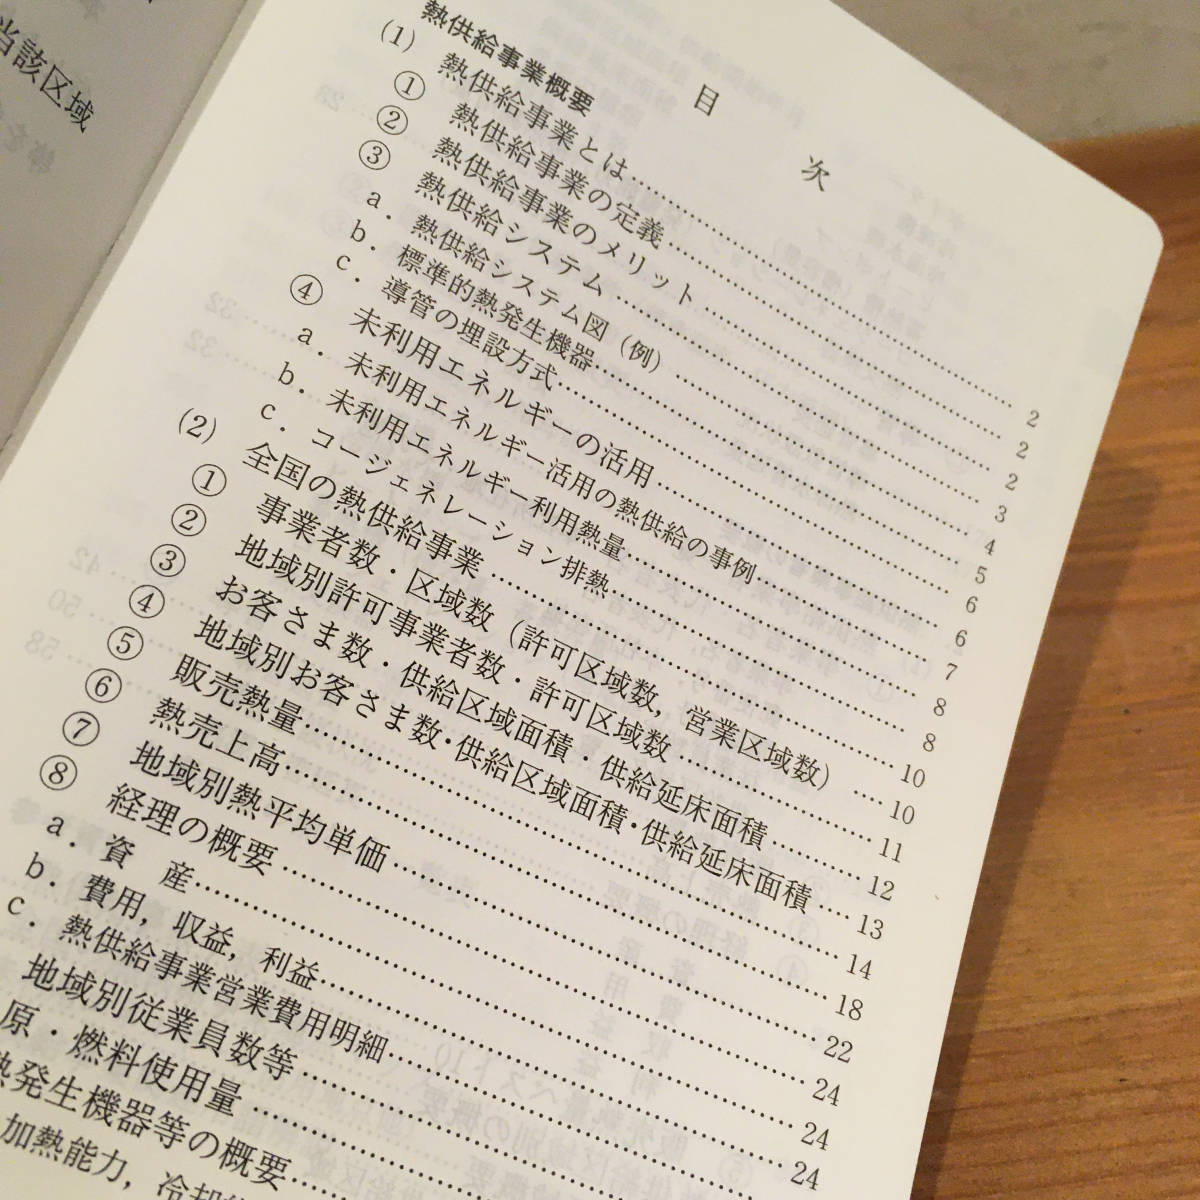 当該区域
目次
熱供給事業概要
(1) 熱供給事業とは……2
① 熱供給事業の定義……2
② 熱供給事業のメリット……2
③ 熱供給システム……3
a. 熱供給システム図（例）……4
b. 標準的熱発生機器……5
c. 導管の埋設方式……6
④ 未利用エネルギーの活用……6
a. 未利用エネルギー活用の熱供給の事例……7
b. 未利用エネルギー利用熱量……8
c. コージェネレーション排熱……8
(2) 全国の熱供給事業……10
① 事業者数・区域数（許可区域数，営業区域数）……10
② 地域別許可事業者数・許可区域数……11
③ お客さま数・供給区域面積・供給延床面積……12
④ 地域別お客さま数・供給区域面積・供給延床面積……13
⑤ 販売熱量……14
⑥ 熱売上高……18
⑦ 地域別熱平均単価……22
⑧ 経理の概要……24
a. 資産……24
b. 費用，収益，利益……24
c. 熱供給事業営業費用明細……
地域別従業員数等……
原・燃料使用量……
熱発生機器等の概要……
加熱能力，冷却